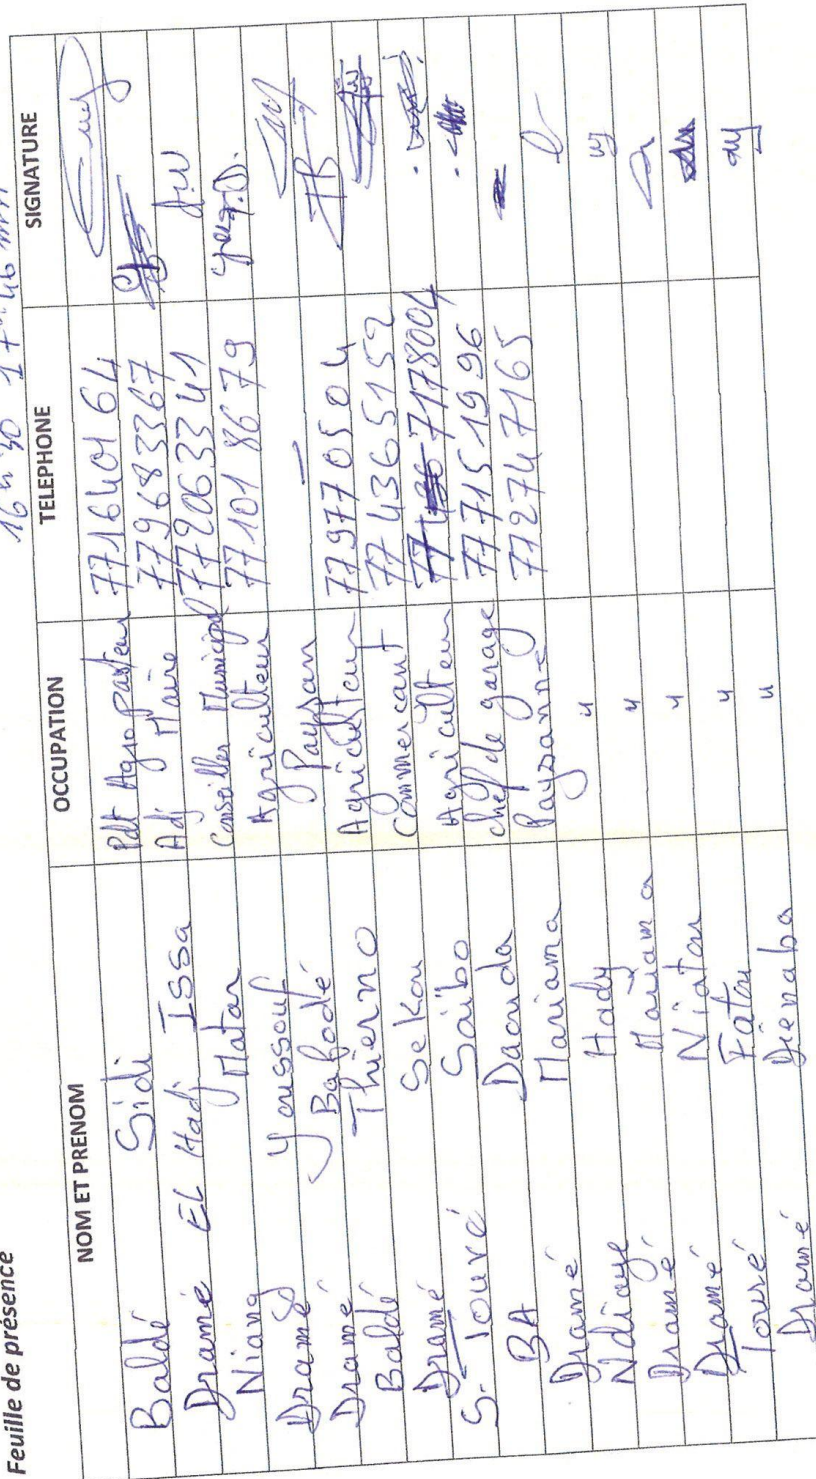 Feuille de présence
16h 30 17h 46 mn
NOM ET PRENOM OCCUPATION TELEPHONE SIGNATURE
Baldé Sidi Pdt Agropasteur 771640164
Dramé EL Hadj Issa Adj Maire 779683367
Niang Matar Conseiller Municipal 772063341
Dramé Youssouf Agriculteur 771018679
Dramé Bafodé Paysan —
Baldé Thierno Agriculteur 779770504
Dramé Sekou Commerçant 774365152
S. Touré Saïbo Agriculteur 777178004
BA Daouda chef de garage 777151996
Dramé Mariama Paysanne 772747165
Ndiaye Hady "
Dramé Mariama "
Dramé Niatou "
Touré Fatou "
Dramé Dienaba "